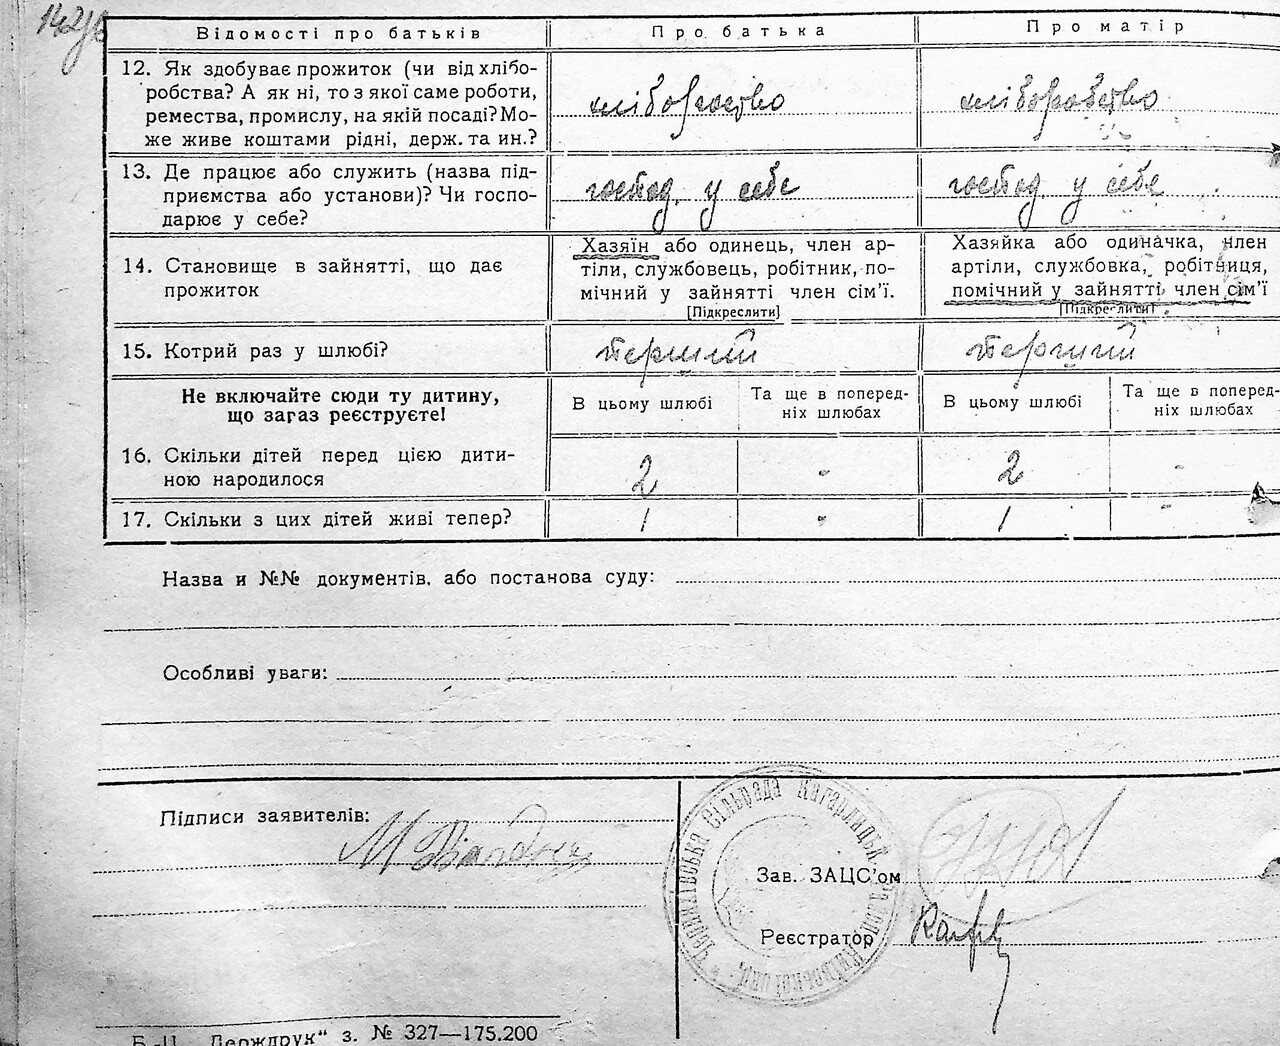 142
Відомості про батьків
Про батька
Про матір
12. Як здобуває прожиток (чи від хлібо-
робства? А як ні, то з якої саме роботи,
ремества, промислу, на якій посаді? Мо-
же живе коштами рідні, держ. та ин.?
хліборобство
хліборобство
13. Де працює або служить (назва під-
приємства або установи)? Чи госпо-
дарює у себе?
господ. у себе
господ у себе
14. Становище в зайнятті, що дає
прожиток
Хазяїн або одинець, член ар-
тіли, службовець, робітник, по-
мічний у зайнятті член сім'ї.
[Підкреслити]
Хазяйка або одиначка, член
артіли, службовка, робітниця,
помічний у зайнятті член сім'ї
[Підкреслити]
15. Котрий раз у шлюбі?
перший
перший
Не включайте сюди ту дитину,
що загаз реєструєте!
В цьому шлюбі
Та ще в поперед-
ніх шлюбах
В цьому шлюбі
Та ще в поперед-
ніх шлюбах
16. Скільки дітей перед цією дити-
ною народилося
2
-
2
-
17. Скільки з цих дітей живі тепер?
1
-
1
-
Назва и №№ документів, або постанова суду:
Особливі уваги:
Підписи заявителів:
Сільрада Кагарлицьк
Зав. ЗАЦС'ом
Реєстратор
Держдрук" з. № 327—175.200